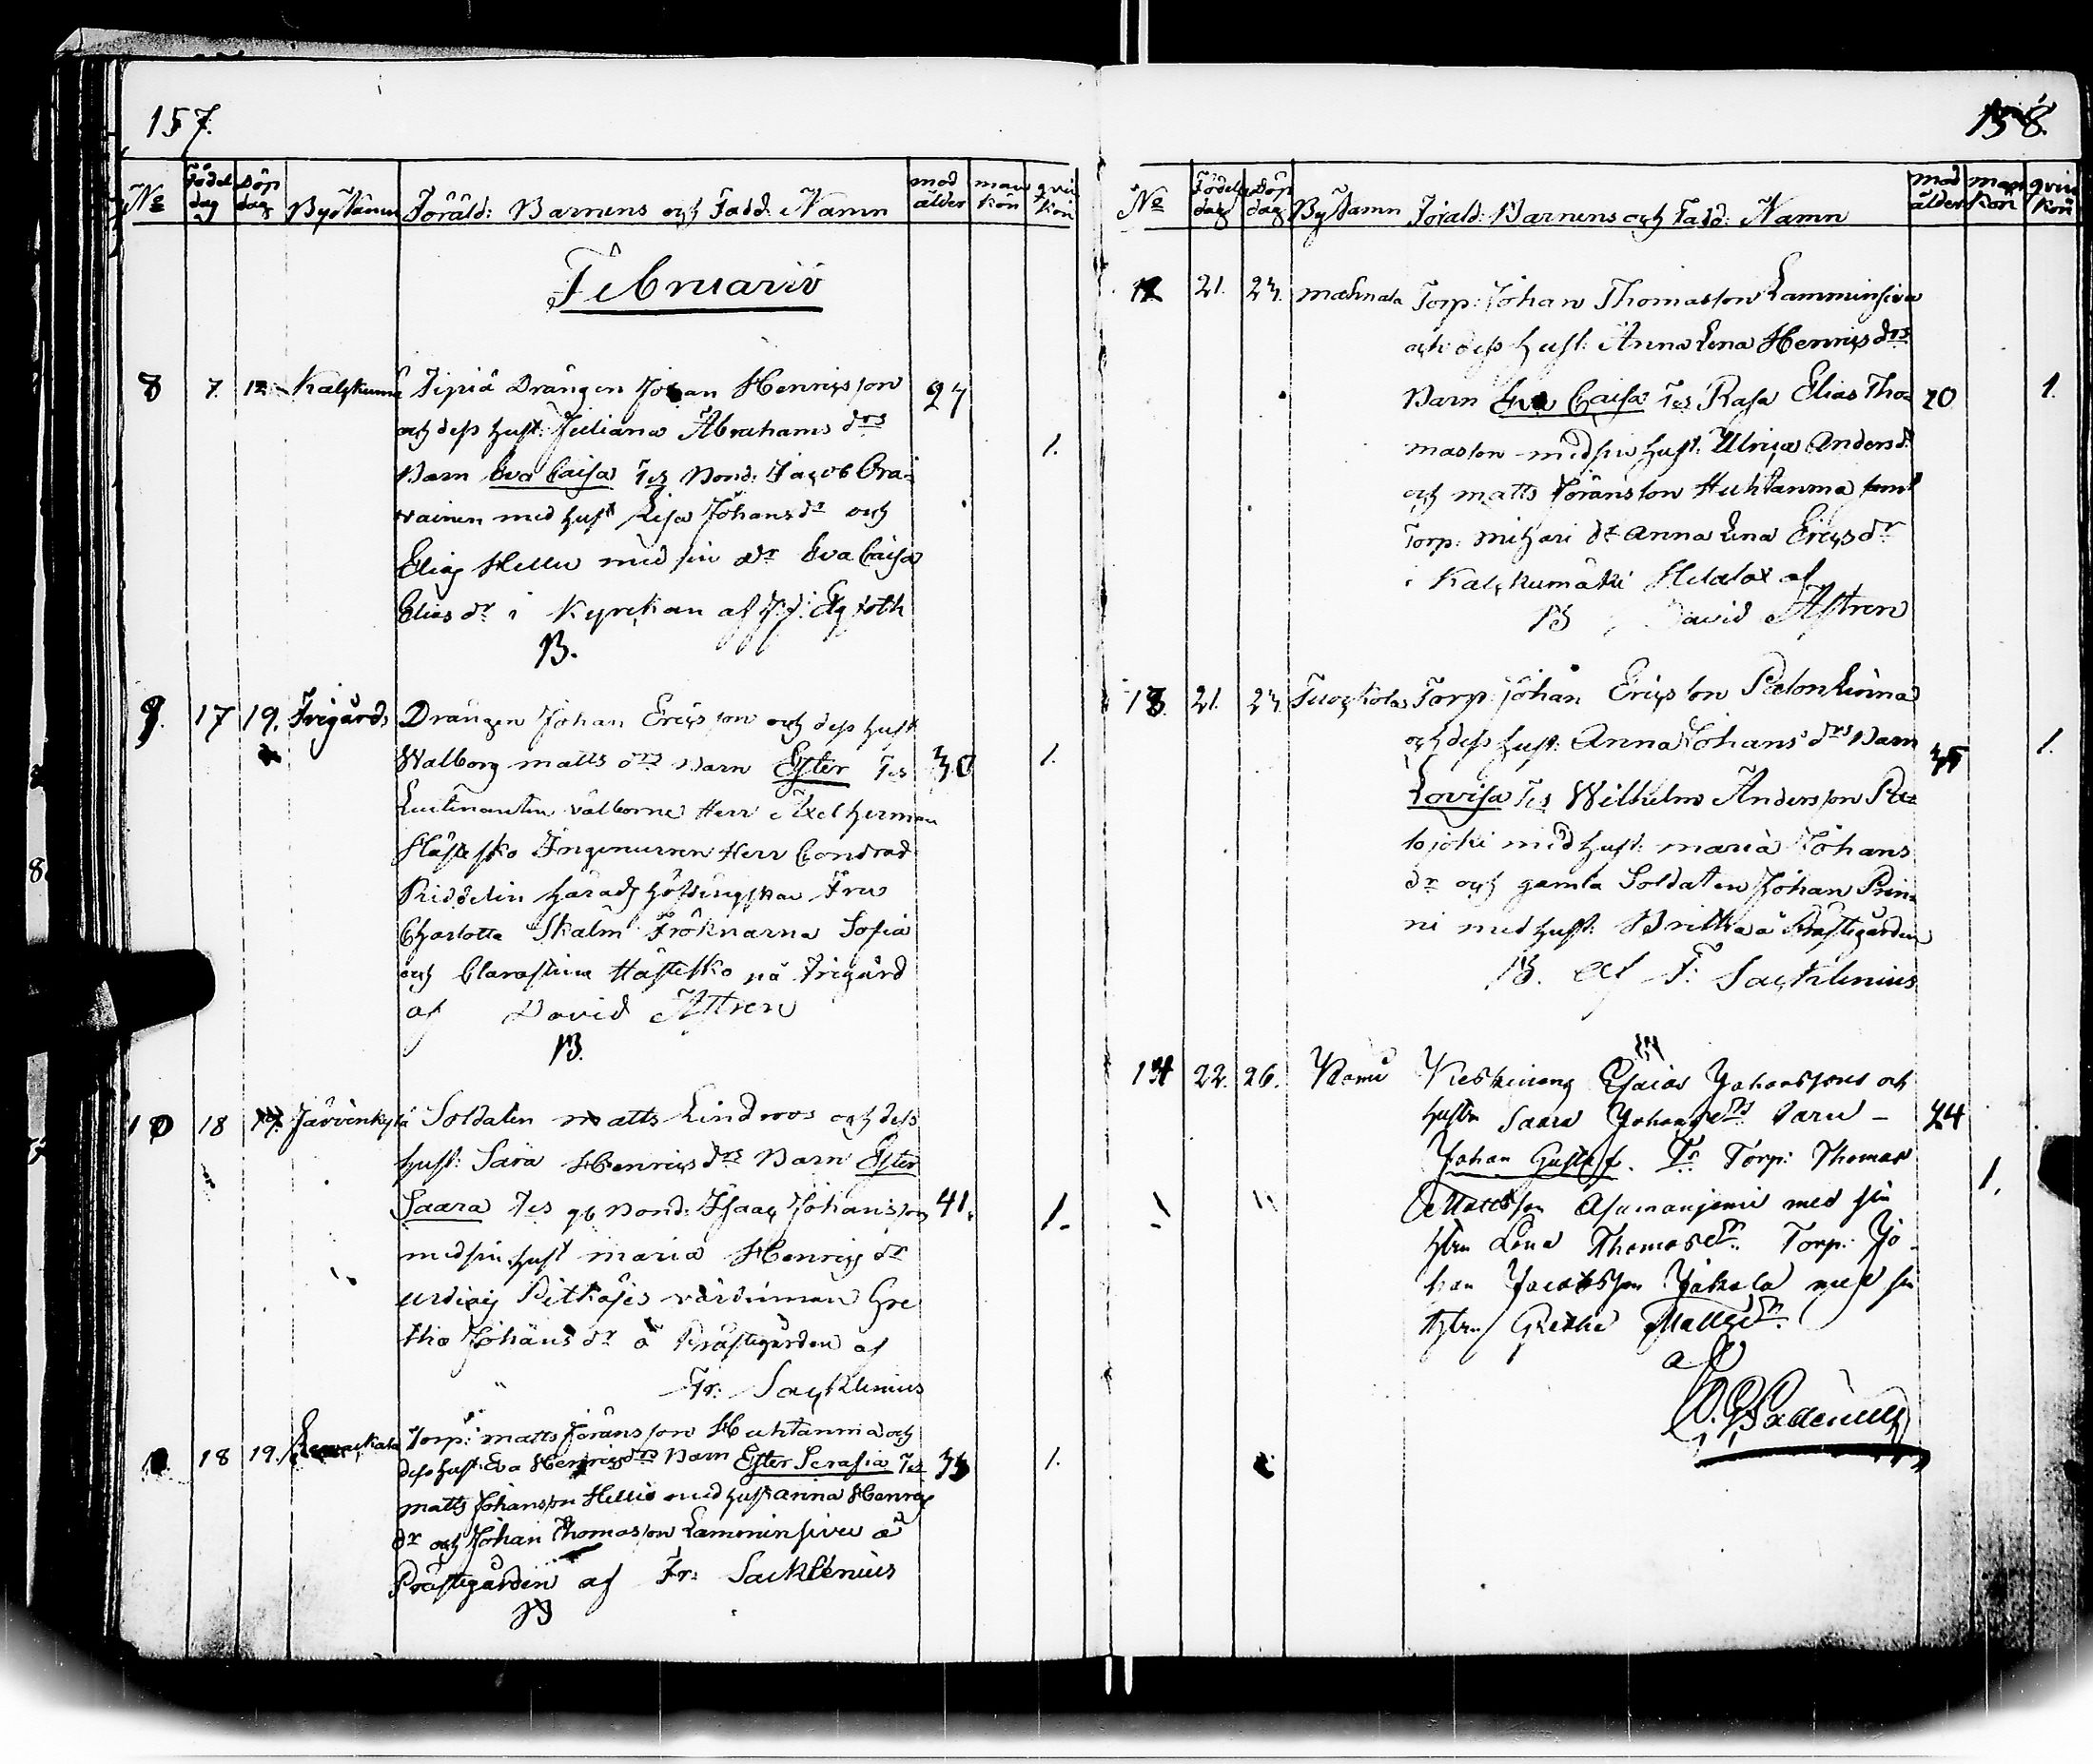 157.
No Födel dag Döp dag Bys Namn Föräld: Barnens och Fadd. Namn mod ålder man kön qvin kön
Februarii
8 7. 12 Kalskumä Tipiä Drängen Johan Henricsson 27
och dess hust: Juliana Abrahams drs 1.
Barn Eva Caisa Tes Bond: Jacob Ora=
vainen med hust Lisa Johans dr och
Elias Hellu med sin dr Eva Caisa
Elias dr i Kyrckan af
B.
9. 17 19. Frigårds Drängen Johan Ericsson och dess hust
Walborg matts drs Barn Ester Tes 30 1.
Leutenanten välborne Herr Axel herman
Hästesko Ingenieuren Herr Condrad
Riddelin häradshöfdingskan Fru
Charlotta Skalm Fröknarna Sofia
och Clarastina Hästesko på Frigård
af David Astren
B.
10 18 19. Järvenkylä Soldaten matts Lindroos och dess
hust: Sara Henrics drs Barn Ester
Saara Tes gb Bond: Isaac Johansson 41. 1.
med sin hust maria Henrics dr
Pitkäjes värdinnan Gre
tha Johans dr å Prästegården af
Fr: Sacklenius
18 19. Torp: matts Jöransson Huhtanmia och
dess hust: Eva Henrics drs Barn Ester Serafia Tes 33 1.
matts Johansson Hellu med hust anna Henrics
dr och Johan Thomasson Lamminsivu å
Prästegården af Fr: Sacklenius
B
158.
No Födel dag Döp dag By Namn Föräld: Barnens och Fadd: Namn mod ålder man kön qvin kön
12 21. 24. mathnala Torp: Johan Thomasson Lamminsivu
och dess hust: Anna Lena Henrics drs
Barn Eva Caisa Tes Rasa Elias Tho= 20 1.
masson med sin hust: Ulrica Anders d.
och matts Jöransson Huhtanma samt
Torp: mihari dr Anna Lena Erics dr
i Kalskumäki af
B David Astren
13. 21. 24. Tuockola Torp: Johan Ericsson Palonkinna
och dess hust: Anna Johans drs Barn 35 1.
Lovisa Tes Wilhelm Andersson Pa=
lojoki med hust: maria Johans
dr och gamla Soldaten Johan Prin=
ni med hust: Britha å Prästegården
B. af F: Sacklenius
14 22. 26. Esaias Johanssons och
hustru Saara Johans drs Barn — 24
Johan Gustaf. Ts Torp: Thomas 1.
Mattsson Asumaniemi med sin
hstru Lena Thomasdr. Torp: Jo-
han Jacobsson Jakola med sin
hstru Gretha Mattsdr.
af